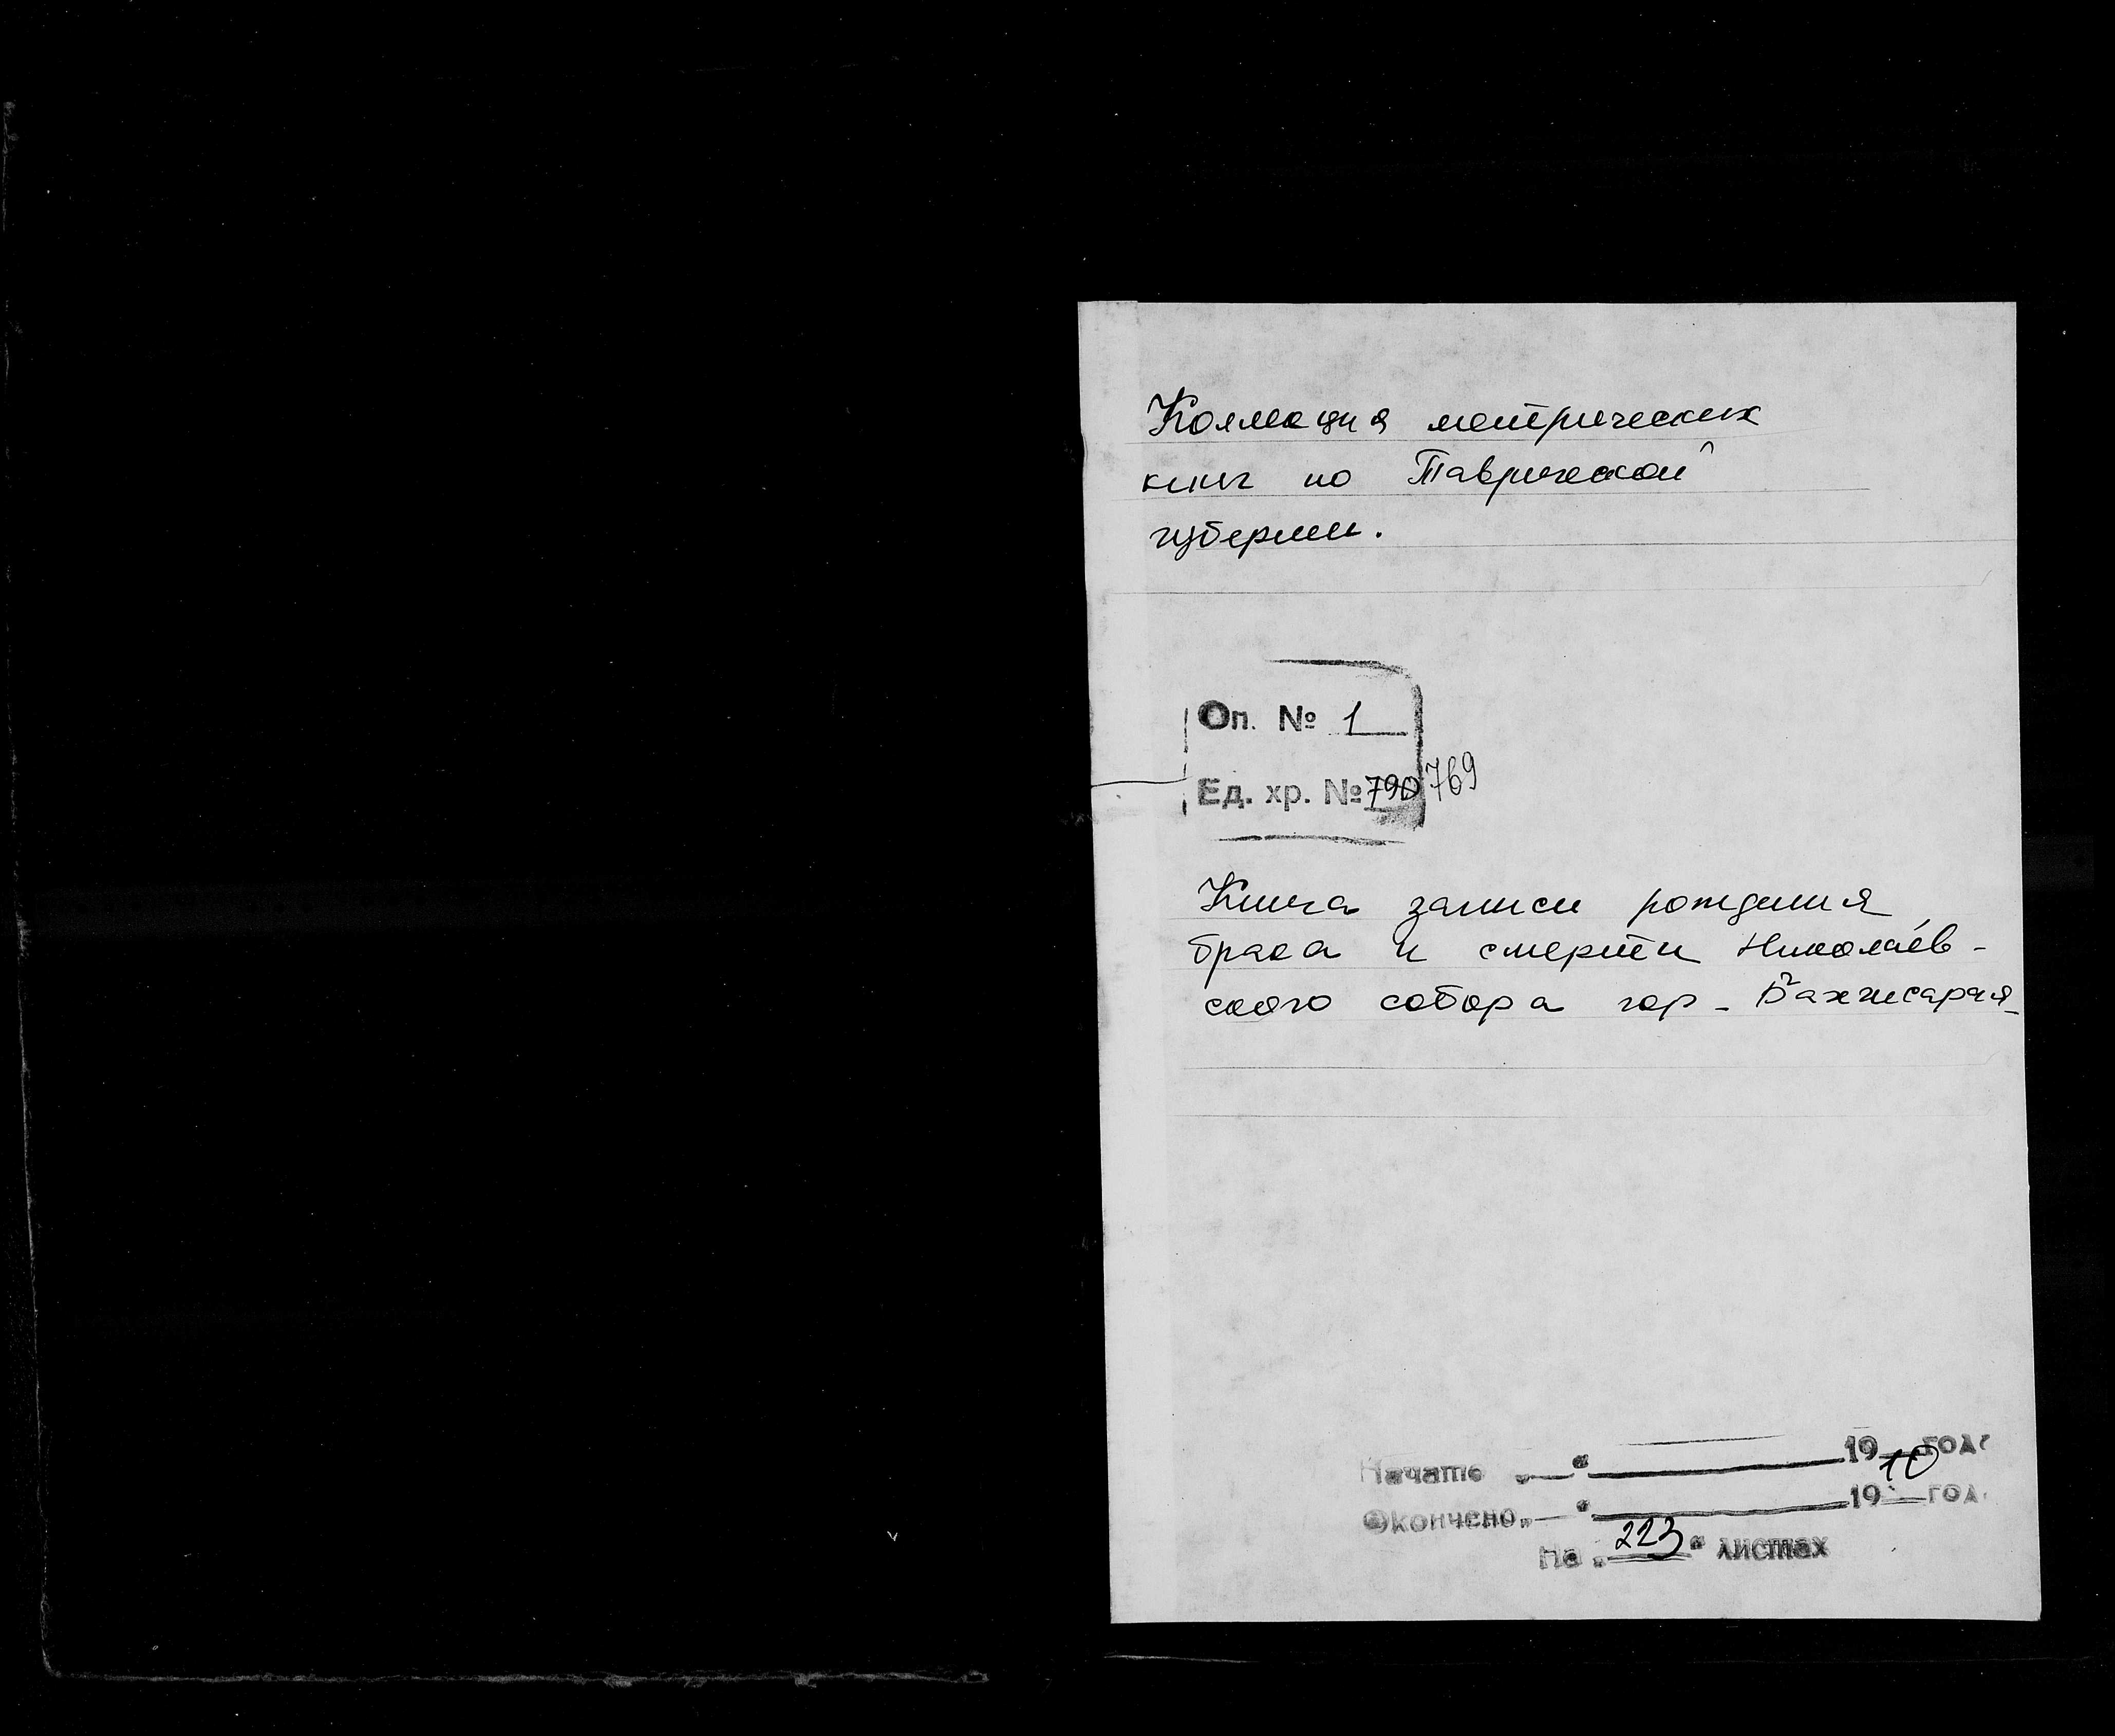 Коллекция метрических
книг по Таврической
губернии.
Оп. № 1
Ед. хр. № 790 769
Книга записи рождения,
брака и смерти Николаев-
ского собора гор. Бахчисарая
Начато „ “ 1910 года
Окончено „ “ 19 год
На „223“ листах